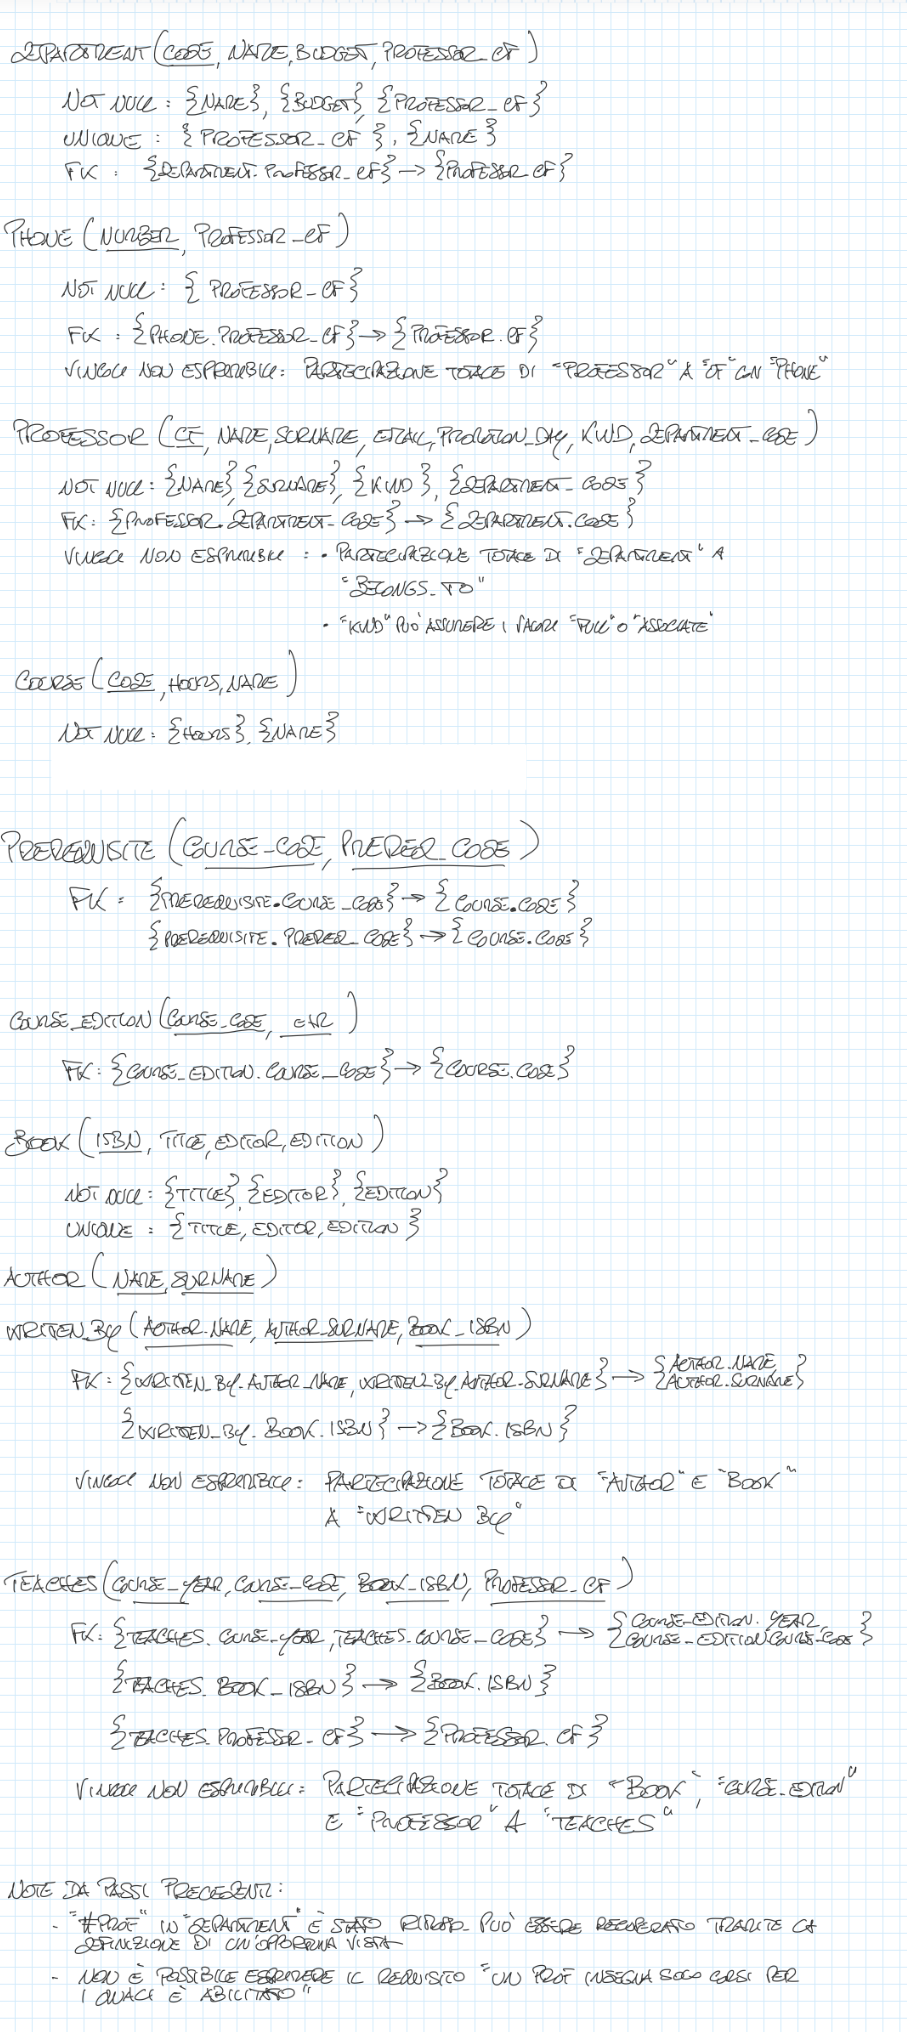 DEPARTMENT (CODE, NAME, BUDGET, PROFESSOR_CF)
NOT NULL : {NAME}, {BUDGET}, {PROFESSOR_CF}
UNIQUE : {PROFESSOR_CF}, {NAME}
FK : {DEPARTMENT.PROFESSOR_CF} → {PROFESSOR.CF}
PHONE (NUMBER, PROFESSOR_CF)
NOT NULL : {PROFESSOR_CF}
FK : {PHONE.PROFESSOR_CF} → {PROFESSOR.CF}
VINCOLI NON ESPRIMIBILI: PARTECIPAZIONE TOTALE DI "PROFESSOR" A "OF" CON "PHONE"
PROFESSOR (CF, NAME, SURNAME, EMAIL, PROMOTION_DAY, KIND, DEPARTMENT_CODE)
NOT NULL : {NAME}, {SURNAME}, {KIND}, {DEPARTMENT_CODE}
FK : {PROFESSOR.DEPARTMENT_CODE} → {DEPARTMENT.CODE}
VINCOLI NON ESPRIMIBILI : • PARTECIPAZIONE TOTALE DI "DEPARTMENT" A
"BELONGS_TO"
• "KIND" PUÒ ASSUMERE I VALORI "FULL" O "ASSOCIATE"
COURSE (CODE, HOURS, NAME)
NOT NULL : {HOURS}, {NAME}
PREREQUISITE (COURSE_CODE, PREREQ_CODE)
FK : {PREREQUISITE.COURSE_CODE} → {COURSE.CODE}
{PREREQUISITE.PREREQ_CODE} → {COURSE.CODE}
COURSE_EDITION (COURSE_CODE, EAR)
FK : {COURSE_EDITION.COURSE_CODE} → {COURSE.CODE}
BOOK (ISBN, TITLE, EDITOR, EDITION)
NOT NULL : {TITLE}, {EDITOR}, {EDITION}
UNIQUE : {TITLE, EDITOR, EDITION}
AUTHOR (NAME, SURNAME)
WRITTEN_BY (AUTHOR_NAME, AUTHOR_SURNAME, BOOK_ISBN)
FK : {WRITTEN_BY.AUTHOR_NAME, WRITTEN_BY.AUTHOR_SURNAME} → {AUTHOR.NAME, AUTHOR.SURNAME}
{WRITTEN_BY.BOOK.ISBN} → {BOOK.ISBN}
VINCOLI NON ESPRIMIBILI: PARTECIPAZIONE TOTALE DI "AUTHOR" E "BOOK"
A "WRITTEN BY"
TEACHES (COURSE_YEAR, COURSE_CODE, BOOK_ISBN, PROFESSOR_CF)
FK : {TEACHES.COURSE_YEAR, TEACHES.COURSE_CODE} → {COURSE_EDITION.YEAR, COURSE_EDITION.COURSE_CODE}
{TEACHES.BOOK_ISBN} → {BOOK.ISBN}
{TEACHES.PROFESSOR_CF} → {PROFESSOR.CF}
VINCOLI NON ESPRIMIBILI: PARTECIPAZIONE TOTALE DI "BOOK", "COURSE_EDITION"
E "PROFESSOR" A "TEACHES"
NOTE DA PASSI PRECEDENTI:
- "#PROF" IN "DEPARTMENT" È STATO RIMOSSO. PUÒ ESSERE RECUPERATO TRAMITE LA
DEFINIZIONE DI UN'OPPORTUNA VISTA
- NON È POSSIBILE ESPRIMERE IL REQUISITO "UN PROF INSEGNA SOLO CORSI PER
I QUALI È ABILITATO"